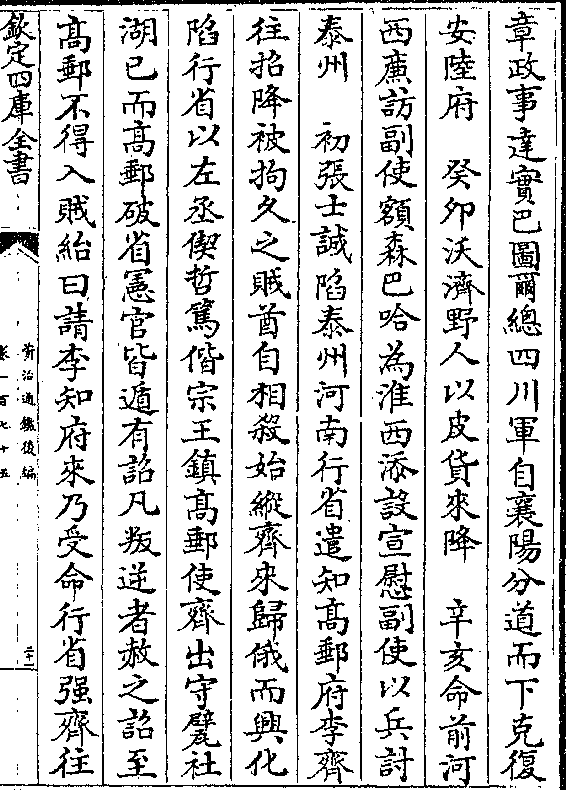 章政事達實巴圖爾總四川軍自襄陽分道而下克復
安陸府　癸卯沃濟野人以皮貨來降　辛亥命前河
西㢘訪副使額森巴哈為淮西添設宣慰副使以兵討
泰州　初張士誠陷泰州河南行省遣知髙郵府李齊
往招降被拘久之賊酋自相殺始縱齊來歸俄而興化
陷行省以左丞偰哲篤偕宗王鎮髙郵使齊出守甓社
湖已而髙郵破省憲官皆遁有詔凡叛逆者赦之詔至
髙郵不得入賊紿曰請李知府來乃受命行省强齊往
欽定四庫全書
資治通鑑後編
卷一百七十五